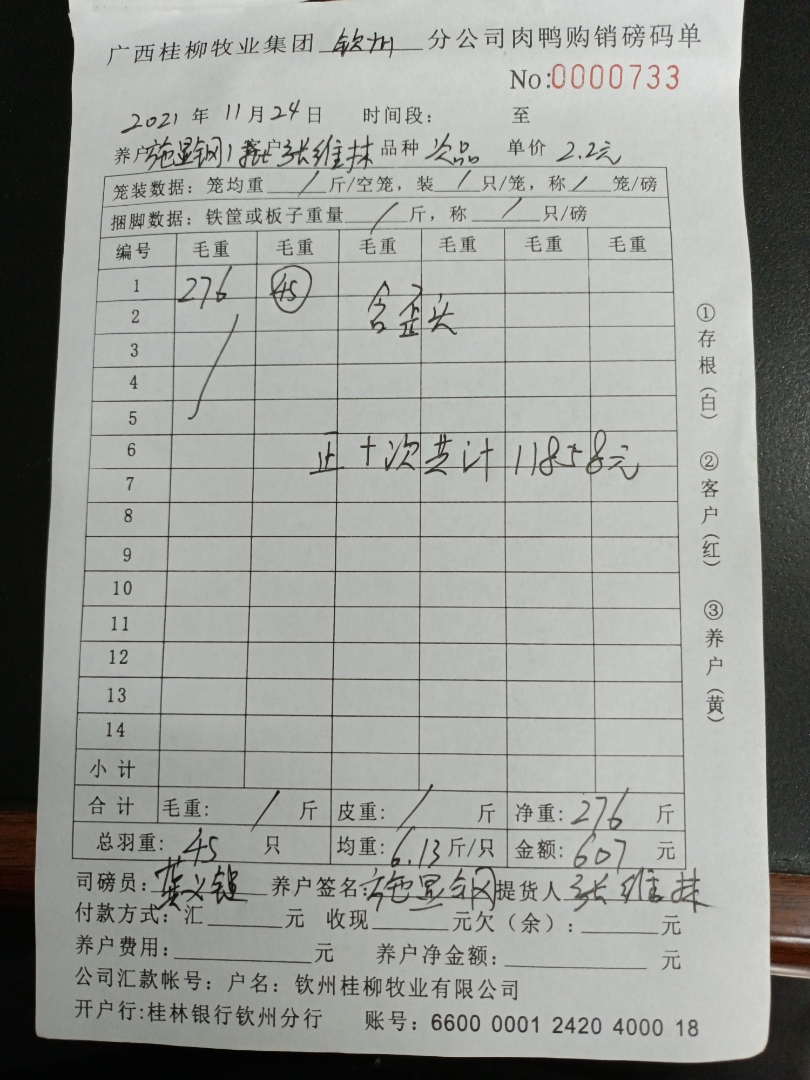 广西桂柳牧业集团 钦州 分公司肉鸭购销磅码单
No:0000733
2021 年 11 月 24 日 时间段: 至
养户 施显钢 客户 张维 品种 次品 单价 2.2元
笼装数据: 笼均重 / 斤/空笼, 装 / 只/笼, 称 / 笼/磅
捆脚数据: 铁筐或板子重量 / 斤, 称 / 只/磅
编号 毛重 毛重 毛重 毛重 毛重 毛重
1 276 45
2 含歪头
3
4
5
6 正十次共计 11858元
7
8
9
10
11
12
13
14
小计
合计 毛重: / 斤 皮重: / 斤 净重: 276 斤
总羽重: 45 只 均重: 6.13 斤/只 金额: 607 元
司磅员: 养户签名: 施显钢 提货人 张维
付款方式: 汇 元 收现 元欠(余): 元
养户费用: 元 养户净金额: 元
公司汇款帐号: 户名: 钦州桂柳牧业有限公司
开户行:桂林银行钦州分行 账号: 6600 0001 2420 4000 18
①存根(白) ②客户(红) ③养户(黄)